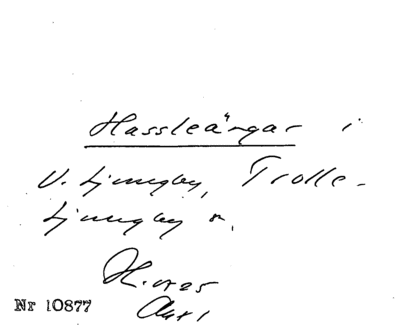 Hassleängar i
V. Ljungby, Trolle-
Ljungby
Nr 10877